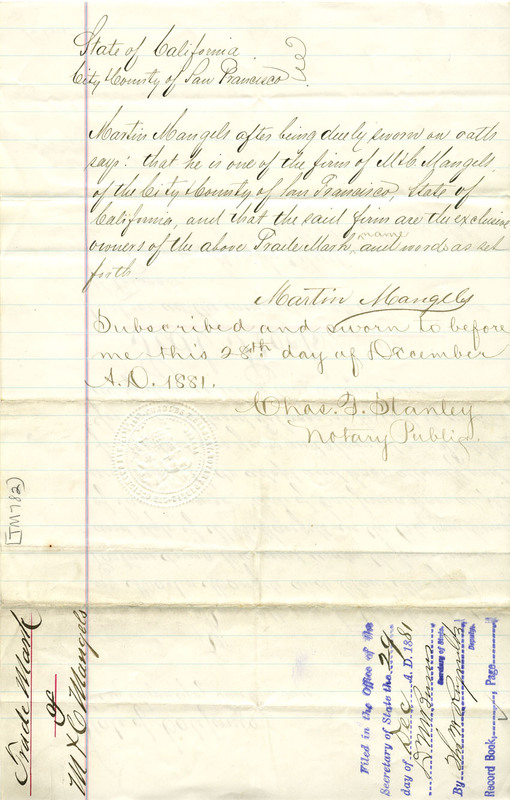 State of California
City & County of San Francisco } ss
Martin Mangels after being duely sworn on oath
says: that he is one of the firm of M & C Mangels,
of the City & County of San Francisco, State of
California, and that the said firm are the exclusive
owners of the above Trade Mark, name and words as set
forth.
Martin Mangels
Subscribed and sworn to before
me this 28th day of December
A.D. 1881.
Chas. F. Stanley
Notary Public.
TM 782
Trade Mark
of
M & C Mangels
Filed in the Office of the
Secretary of State the 29
day of Dec A.D. 1881
Secretary of State.
By
Deputy.
Record Book, Page